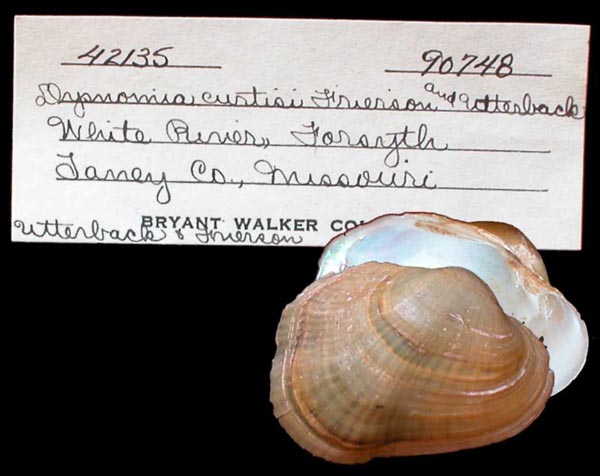 42135 90748
Dysnomia curtisi Frierson and Utterback
White River, Forsyth
Taney Co., Missouri
BRYANT WALKER
Utterback & Frierson